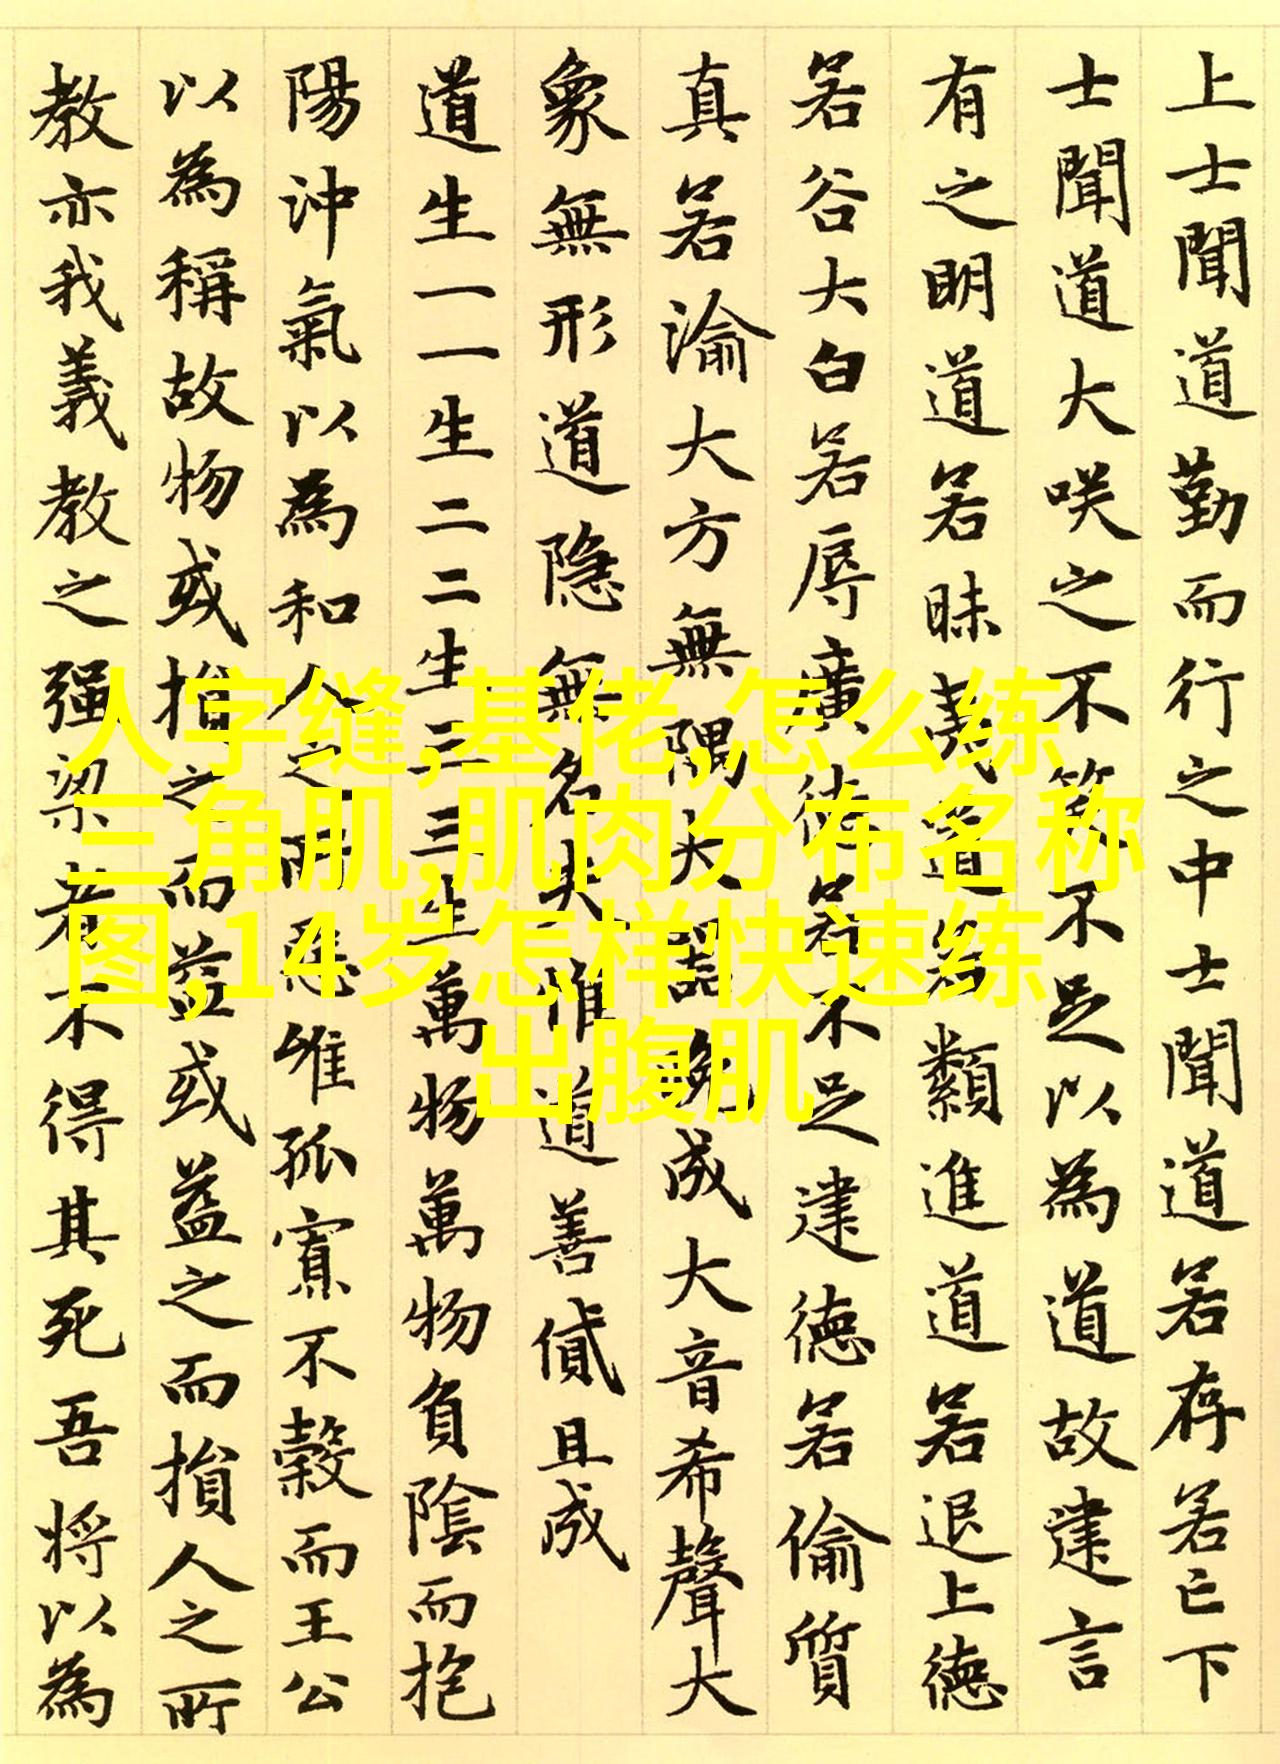 上士聞道勤而行之中士聞道若存若亡下
士聞道大咲之不笑不足以為道故建言
有之明道若昧夷道若類進道若退上德
若谷大白若辱廣德若不足建德若偷質
真若渝大方無隅大器晚成大音希聲大
象無形道隐無名夫惟道善貸且成
道生一一生二二生三三生萬物萬物負陰而抱
陽沖氣以為和人之所惡唯孤寡不穀而王公
以為稱故物或損之而益或益之而損人之所
教亦我義教之强梁者不得其死吾将以為
人字缝,基佬,怎么练
三角肌,肌肉分布名称
图,14岁怎样快速练
出腹肌